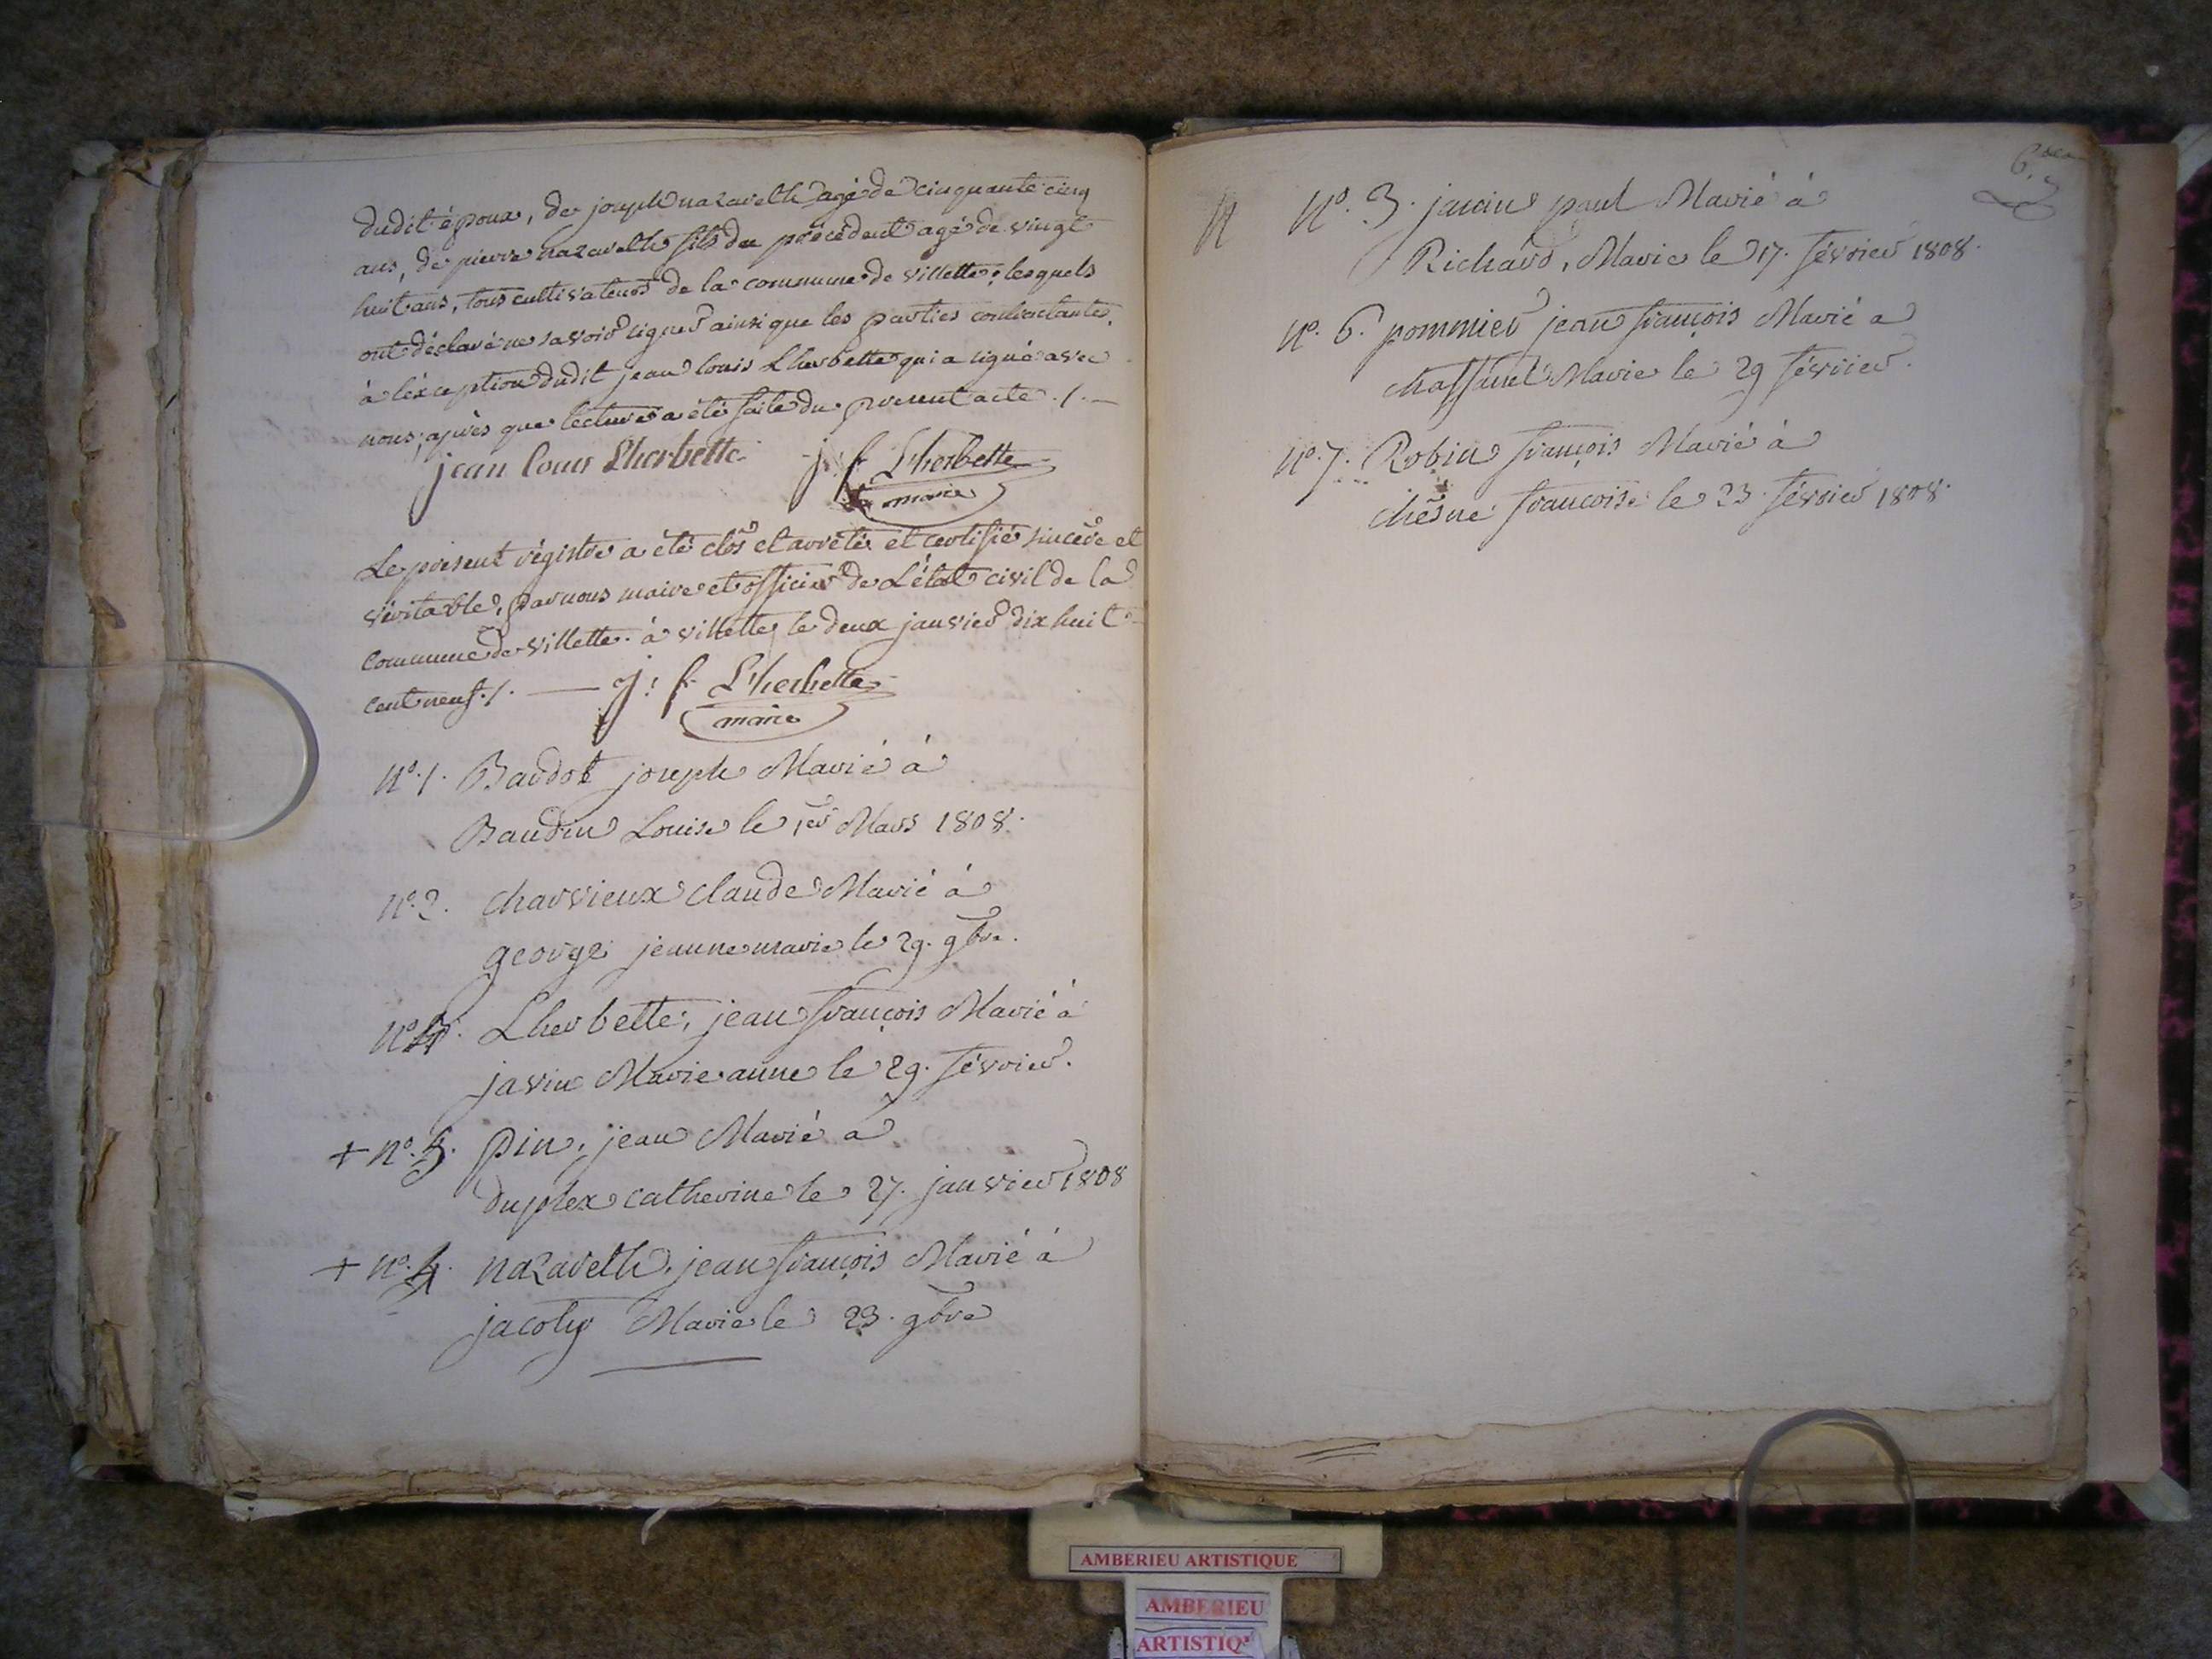 dudit époux, de joseph nazareth agé de cinquante cinq
ans, de pierre nazareth fils du précédent agé de vingt
huit ans, tous cultivateurs de la commune de villette; lesquels
ont déclaré ne savoir signer ainsi que les parties contractantes,
à l'éxception dudit jean louis Lherbette qui a signé avec
nous, après que lecture a été faite du present acte ./. —
jean louis Lherbette j. f. Lherbette
maire
Le présent régistre a été clos et arrêté et certifié sincère et
véritable, par nous maire et officier de L'état civil de la
commune de villette. à villette le deux janvier dix huit
cent neuf ./. — j. f. Lherbette
maire
N°. 1. Baudot joseph Marié à
Baudin Louise le 1er Mars 1808.
N°. 2. charvieux claude Marié à
george jeanne marie le 29. 9bre.
N° Lherbette, jean françois Marié à
javin Marie anne le 29. février.
+ N°. 5. Pin, jean Marié à
duplex catherine le 27. janvier 1808
+ N°. 4. nazareth, jean françois Marié à
jacoty Marie le 23. 9bre
6.
N°. 3. jancin paul Marié à
Richard, Marie le 17. février 1808.
N°. 6. pommier jean françois Marié a
Marie le 29 février.
N°. 7. Robin françois Marié à
chesne francoise le 23. février 1808.
AMBERIEU ARTISTIQUE
AMBERIEU
ARTISTIQ